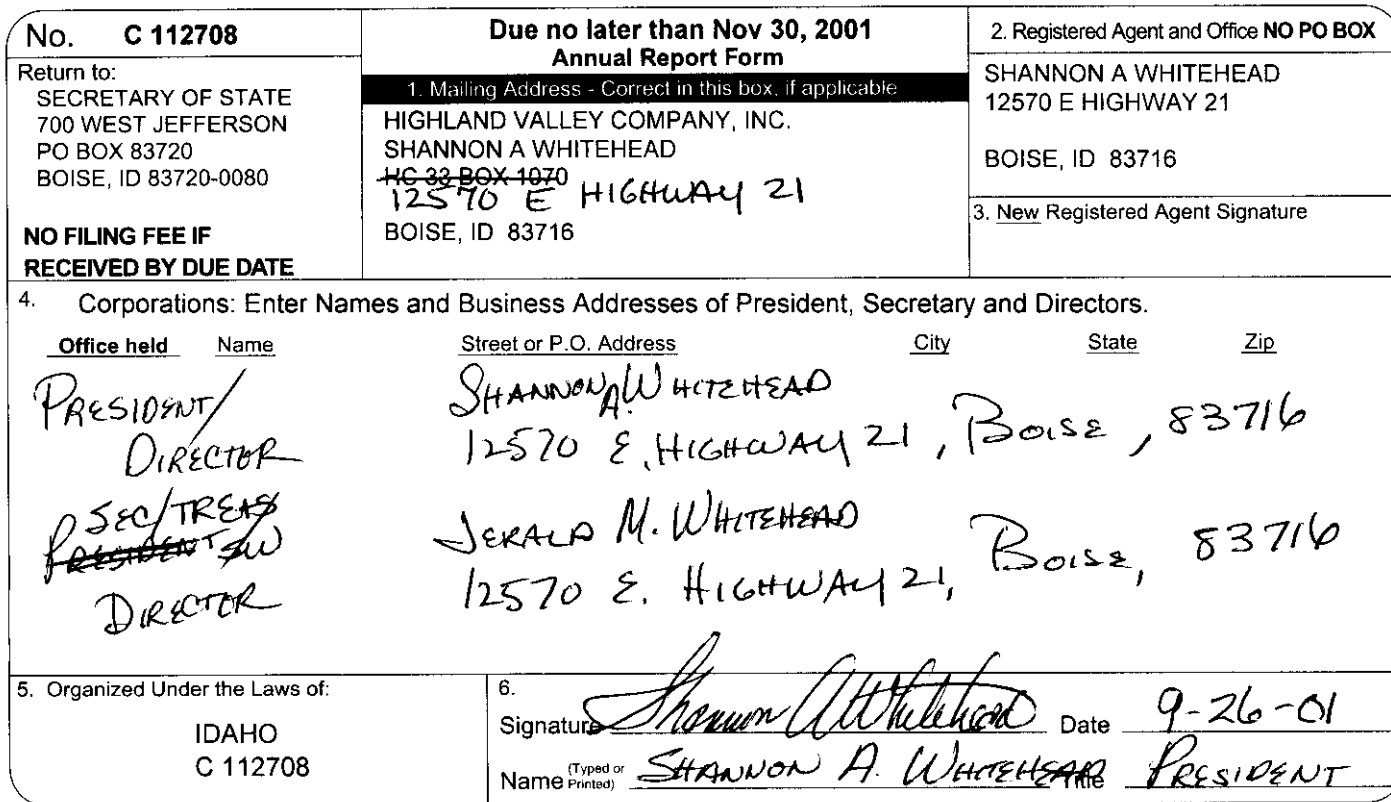 No. C 112708
Return to:
SECRETARY OF STATE
700 WEST JEFFERSON
PO BOX 83720
BOISE, ID 83720-0080
NO FILING FEE IF
RECEIVED BY DUE DATE
Due no later than Nov 30, 2001
Annual Report Form
1. Mailing Address - Correct in this box, if applicable
HIGHLAND VALLEY COMPANY, INC.
SHANNON A WHITEHEAD
HC 33 BOX 1070
12570 E HIGHWAY 21
BOISE, ID 83716
2. Registered Agent and Office NO PO BOX
SHANNON A WHITEHEAD
12570 E HIGHWAY 21
BOISE, ID 83716
3. New Registered Agent Signature
4. Corporations: Enter Names and Business Addresses of President, Secretary and Directors.
Office held Name Street or P.O. Address City State Zip
PRESIDENT/ SHANNON A. WHITEHEAD
DIRECTOR 12570 E. HIGHWAY 21, BOISE, 83716
SEC/TREAS JERALD M. WHITEHEAD
PRESIDENT SW 12570 E. HIGHWAY 21, BOISE, 83716
DIRECTOR
5. Organized Under the Laws of:
IDAHO
C 112708
6.
Signature Shannon A Whitehead Date 9-26-01
Name (Typed or Printed) SHANNON A. WHITEHEAD Title PRESIDENT